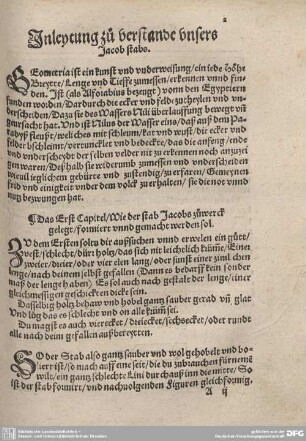 2
Inleytung zů verstande vnsers
Jacob stabs.
GEometria ist ein kunst vnd vnderweisung / ein iede höhe
Breytte / Lenge vnd Tieffe zumessen / erkennen vnnd fin-
den. Ist (als Alfoiadius bezeugt) vonn den Egyptiern
funden worden / Dardurch die ecker vnd feld zutheylen vnd vn-
derscheiden / Daza sie des Wassers Nili überlauffung bewegt vñ
georsacht hat. Vnd ist Nilus der Wasser eins / daß auß dem Pa-
radyß fleußt / weliches mit schleum / kat vnd wust / die ecker vnd
felder bschleimt / verruncklet vnd bedeckt / das die anfeng / ende
vnd vnderscheyde der selben velder nit zu erkennen noch anzuzei
gen waren. Darumb sie die widerumb zumessen vnd vnderscheiden
eiweil ieglichem gebürte vnd zustendig / zu erfaren / Gemeynen
frid vnd einigkeit vnder dem volck zu erhalten / sie die not vnnd
nutz bezwungen hat.
¶ Das Erst Capitel / Wie der stab Jacobs zůwerck
gelegt / formiert vnnd gemacht werden sol.
ZV dem Ersten soltu dir auffsuchen vnnd erwelen ein gůtt /
vest / schlecht / dürr holtz / das sich nit leichtlich krümme / Einer
zweier / dreier / oder vier elen lang / oder sunst einer zimlichen
lenge / nach deinem selbst gefallen (Dann es bedarff kein sonder
maß der lenge haben) Es sol auch nach gestalt der lenge / einer
gleichmessigen geschickten dicke sein.
Dasselbig holtz behaw vnd hobel gantz sauber gerad vñ glat
Vnd lůg das es schlecht vnd on alle krümm sei.
Du magst es auch viereckt / dreieckt / sechseckt / oder runde
alle nach deim gefallen außbereytten.
SO der Stab also gantz sauber vnd wol gehobelt vnd bo-
liert ist / so mach auff eine seit / die du zubrauchen fürnemē
wilt / ein gantz schlechte Lini durchauß inn die mitte / So
ist der stab formirt / vnd nachuolgenden Figuren gleichförmig.
A ij